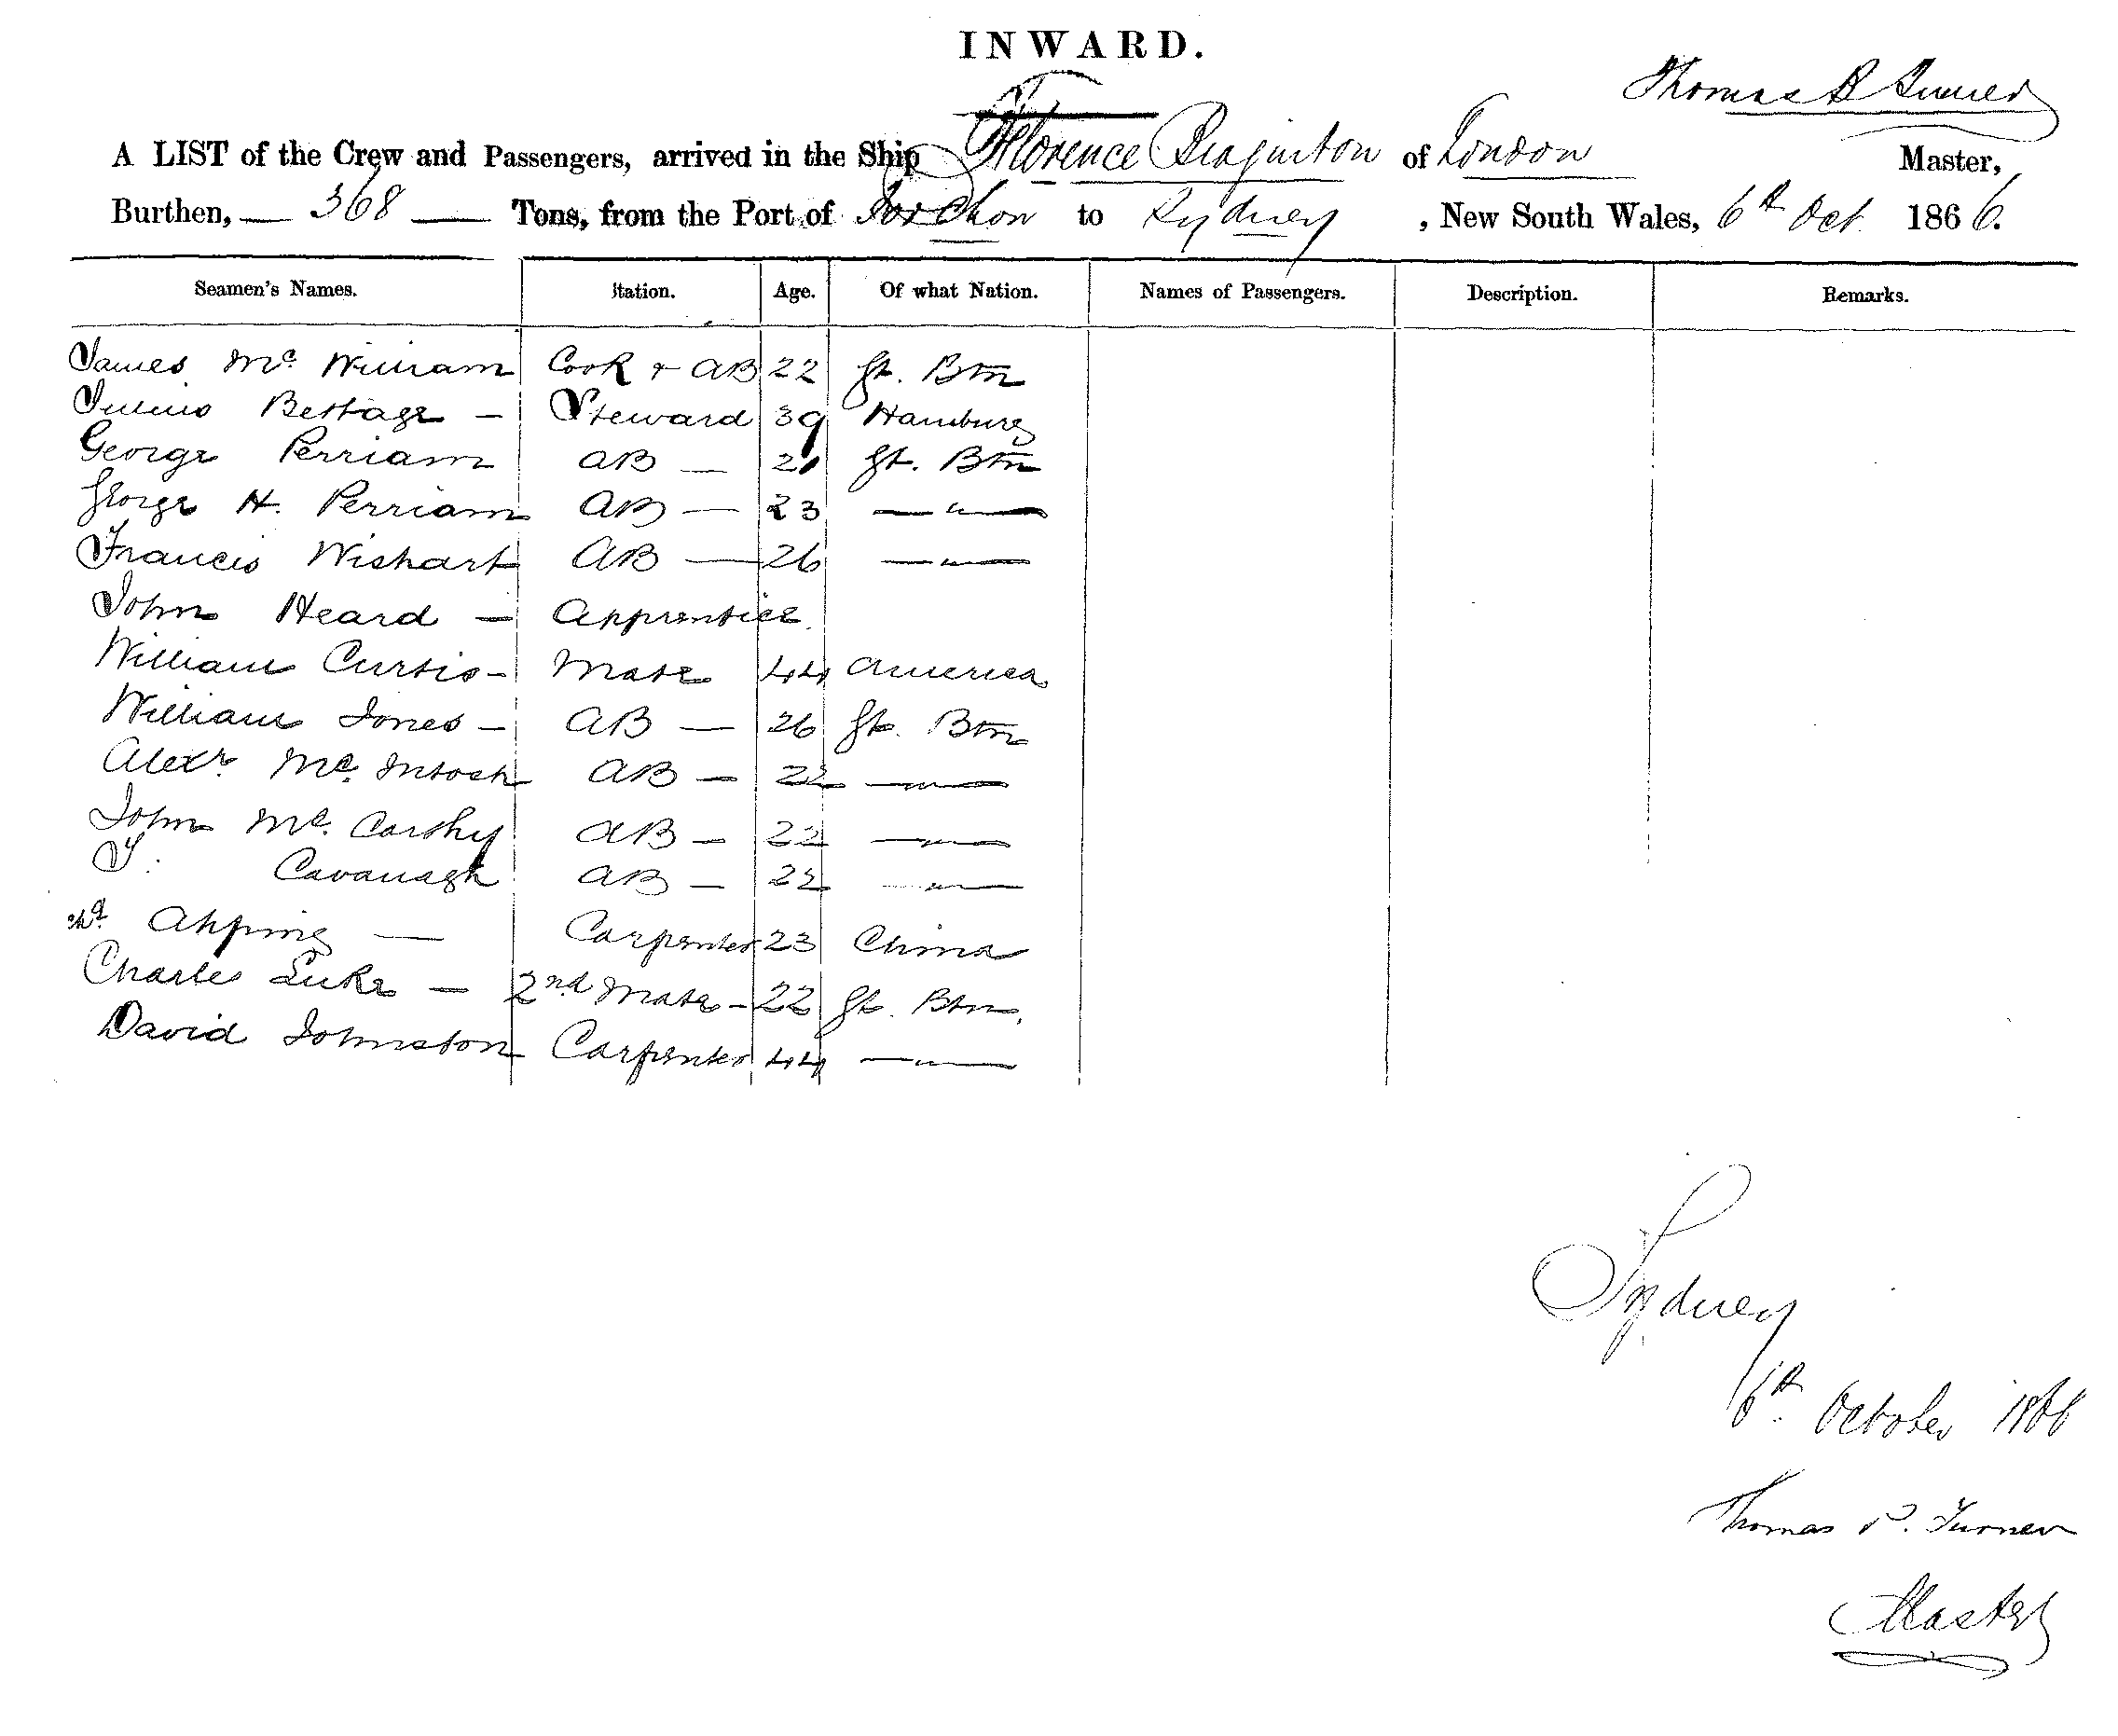 INWARD.
Thomas R Turner
A LIST of the Crew and Passengers, arrived in the Ship Florence Braginton of London Master,
Burthen, — 368 — Tons, from the Port of Foo Chow to Sydney, New South Wales, 6th Oct 1866.
Seamen's Names. Station. Age. Of what Nation. Names of Passengers. Description. Remarks.
James Mc William Cook + AB 22 Gt. Btn
Julius — Steward 39 Hamburg
George Perriam AB — 21 Gt. Btn
George H. Perriam AB — 23 — " —
Francis Wishart AB — 26 — " —
John Heard — Apprentice
William Curtis — Mate 44 America
William Jones — AB — 26 Gt. Btn
Alexr. Mc. Intosh AB — 22 — " —
John Mc. Carthy AB — 22 — " —
T. Cavanagh AB — 22 — " —
Ahping — Carpenter 23 China
Charles Luke — 2nd Mate — 22 Gt. Btn.
David Johnston Carpenter 44 — " —
Sydney
6th October 1866
Thomas R. Turner
Master